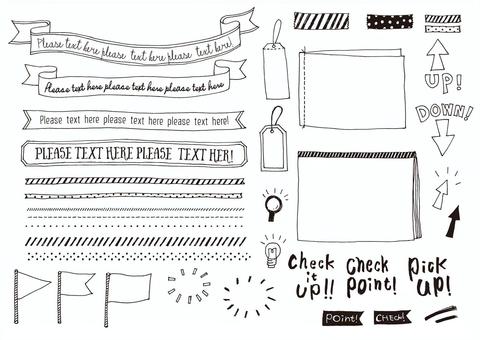 Please text here please text here please text here!
Please text here please text here please text here
Please text here please text here please text here!
PLEASE TEXT HERE PLEASE TEXT HER!
UP!
DOWN!
Check
it
up!!
Check
point!
Pick
up!
POINT!
CHECK!